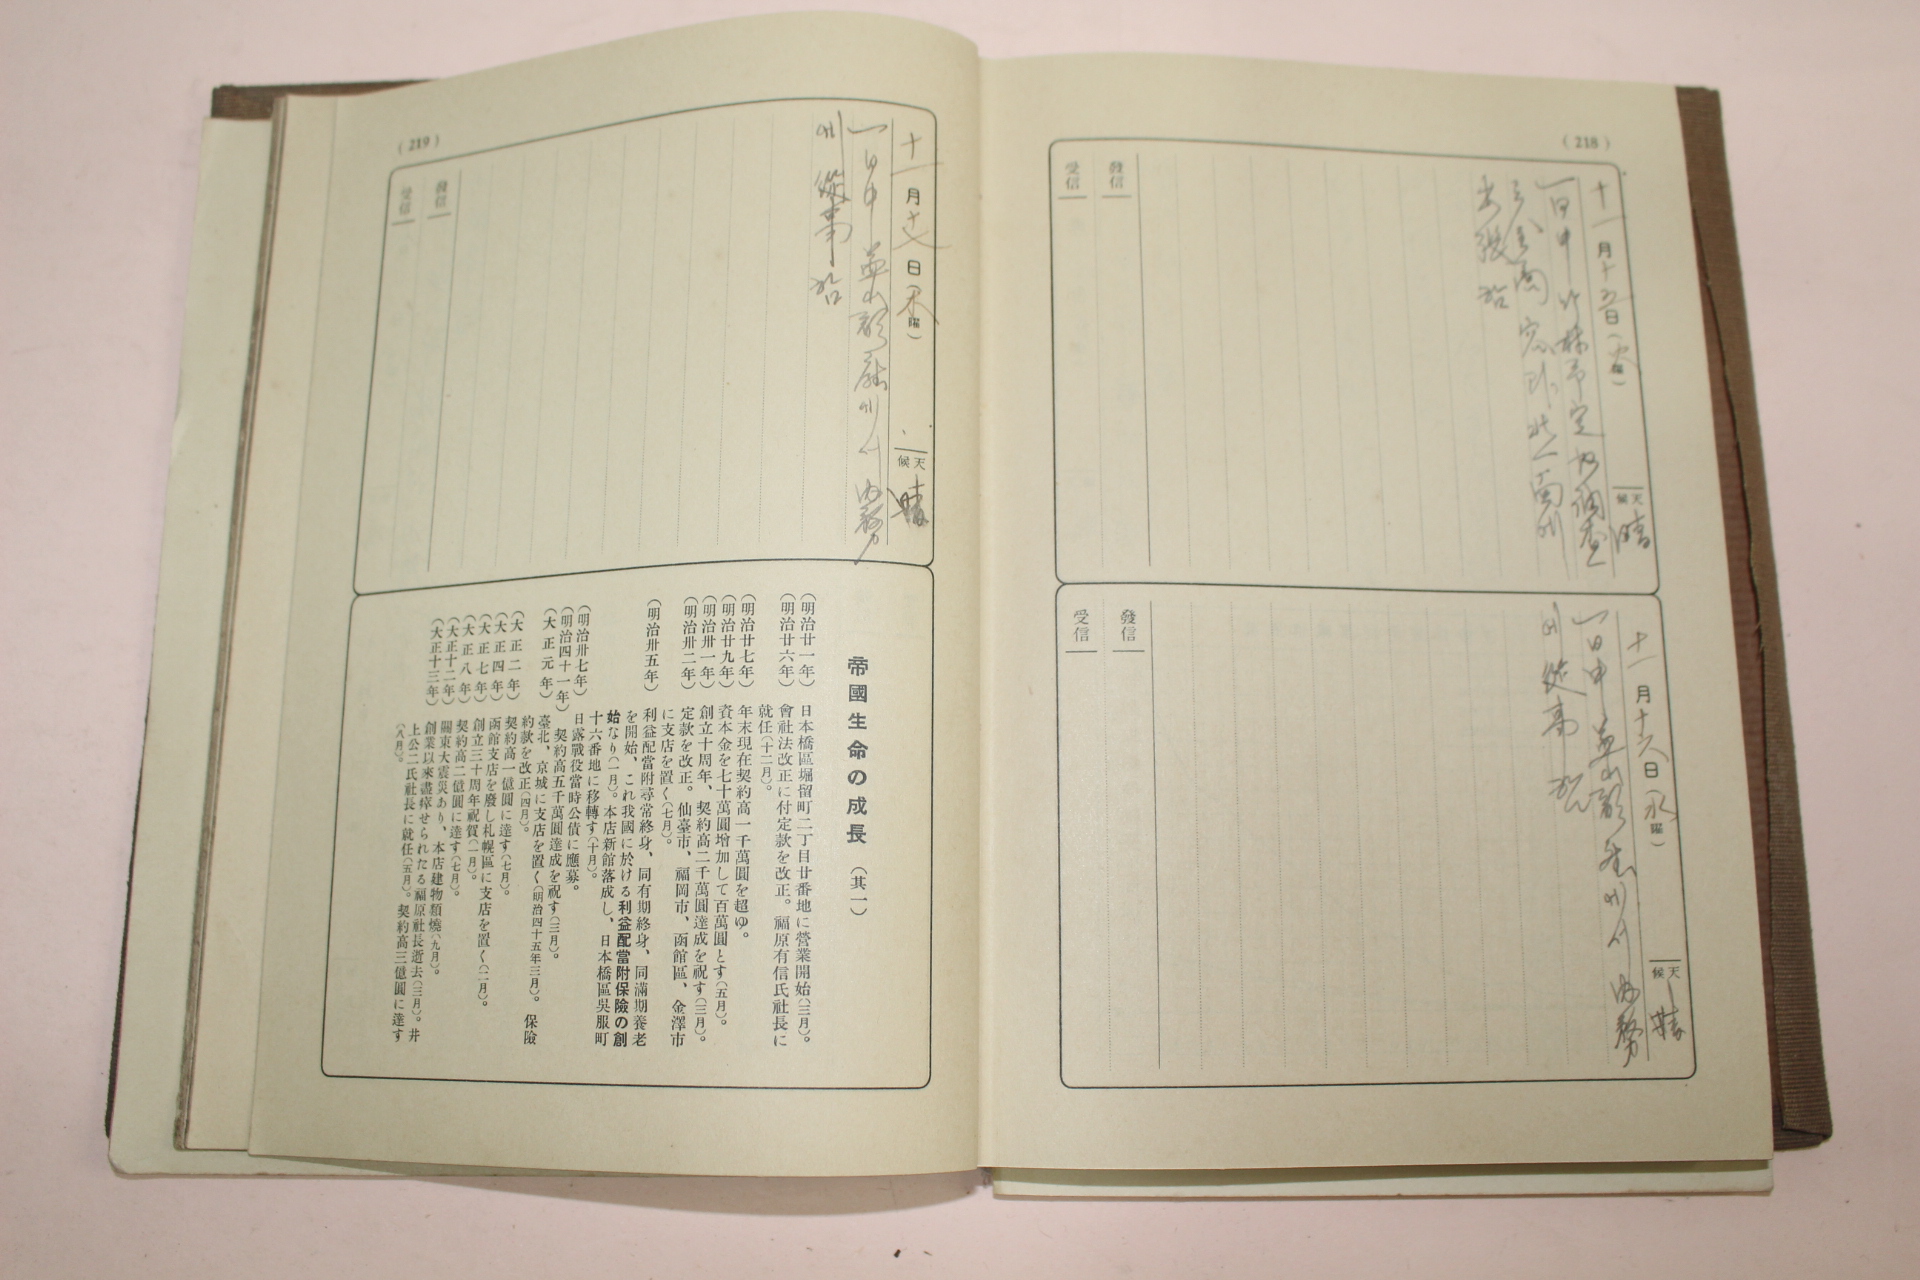 (218)
十一月十五日(火曜)
天候 晴
發信
受信
十一月十六日(水曜)
天候 晴
一日中
內務
發信
受信
(219)
十一月十七日(木曜)
天候 晴
一日中
內務
에 從事
發信
受信
帝國生命の成長(其一)
(明治廿一年) 日本橋區堀留町二丁目廿番地に營業開始(三月)。
(明治廿六年) 會社法改正に付定款を改正。福原有信氏社長に
就任(十二月)。
(明治廿七年) 年末現在契約高一千萬圓を超ゆ。
(明治廿九年) 資本金を七十萬圓增加して百萬圓とす(五月)。
(明治卅一年) 創立十周年、契約高二千萬圓達成を祝す(三月)。
(明治卅二年) 定款を改正。仙臺市、福岡市、函館區、金澤市
に支店を置く(七月)。
(明治卅五年) 利益配當附尋常終身、同有期終身、同滿期養老
を開始、これ我國に於ける利益配當附保險の創
始なり(一月)。本店新館落成し、日本橋區吳服町
十六番地に移轉す(十月)。
(明治卅七年) 日露戰役當時公債に應募。
(明治四十一年) 契約高五千萬圓達成を祝す(三月)。
(大正元年) 臺北、京城に支店を置く(明治四十五年三月)。保險
約款を改正(四月)。
(大正二年) 契約高一億圓に達す(七月)。
(大正四年) 函館支店を廢し札幌區に支店を置く(二月)。
(大正七年) 創立三十周年祝賀(一月)。
(大正八年) 契約高二億圓に達す(七月)。
(大正十二年) 關東大震災あり、本店建物類燒(九月)。
(大正十三年) 創業以來盡瘁せられたる福原社長逝去(三月)。井
上公二氏社長に就任(五月)。契約高三億圓に達す
(八月)。